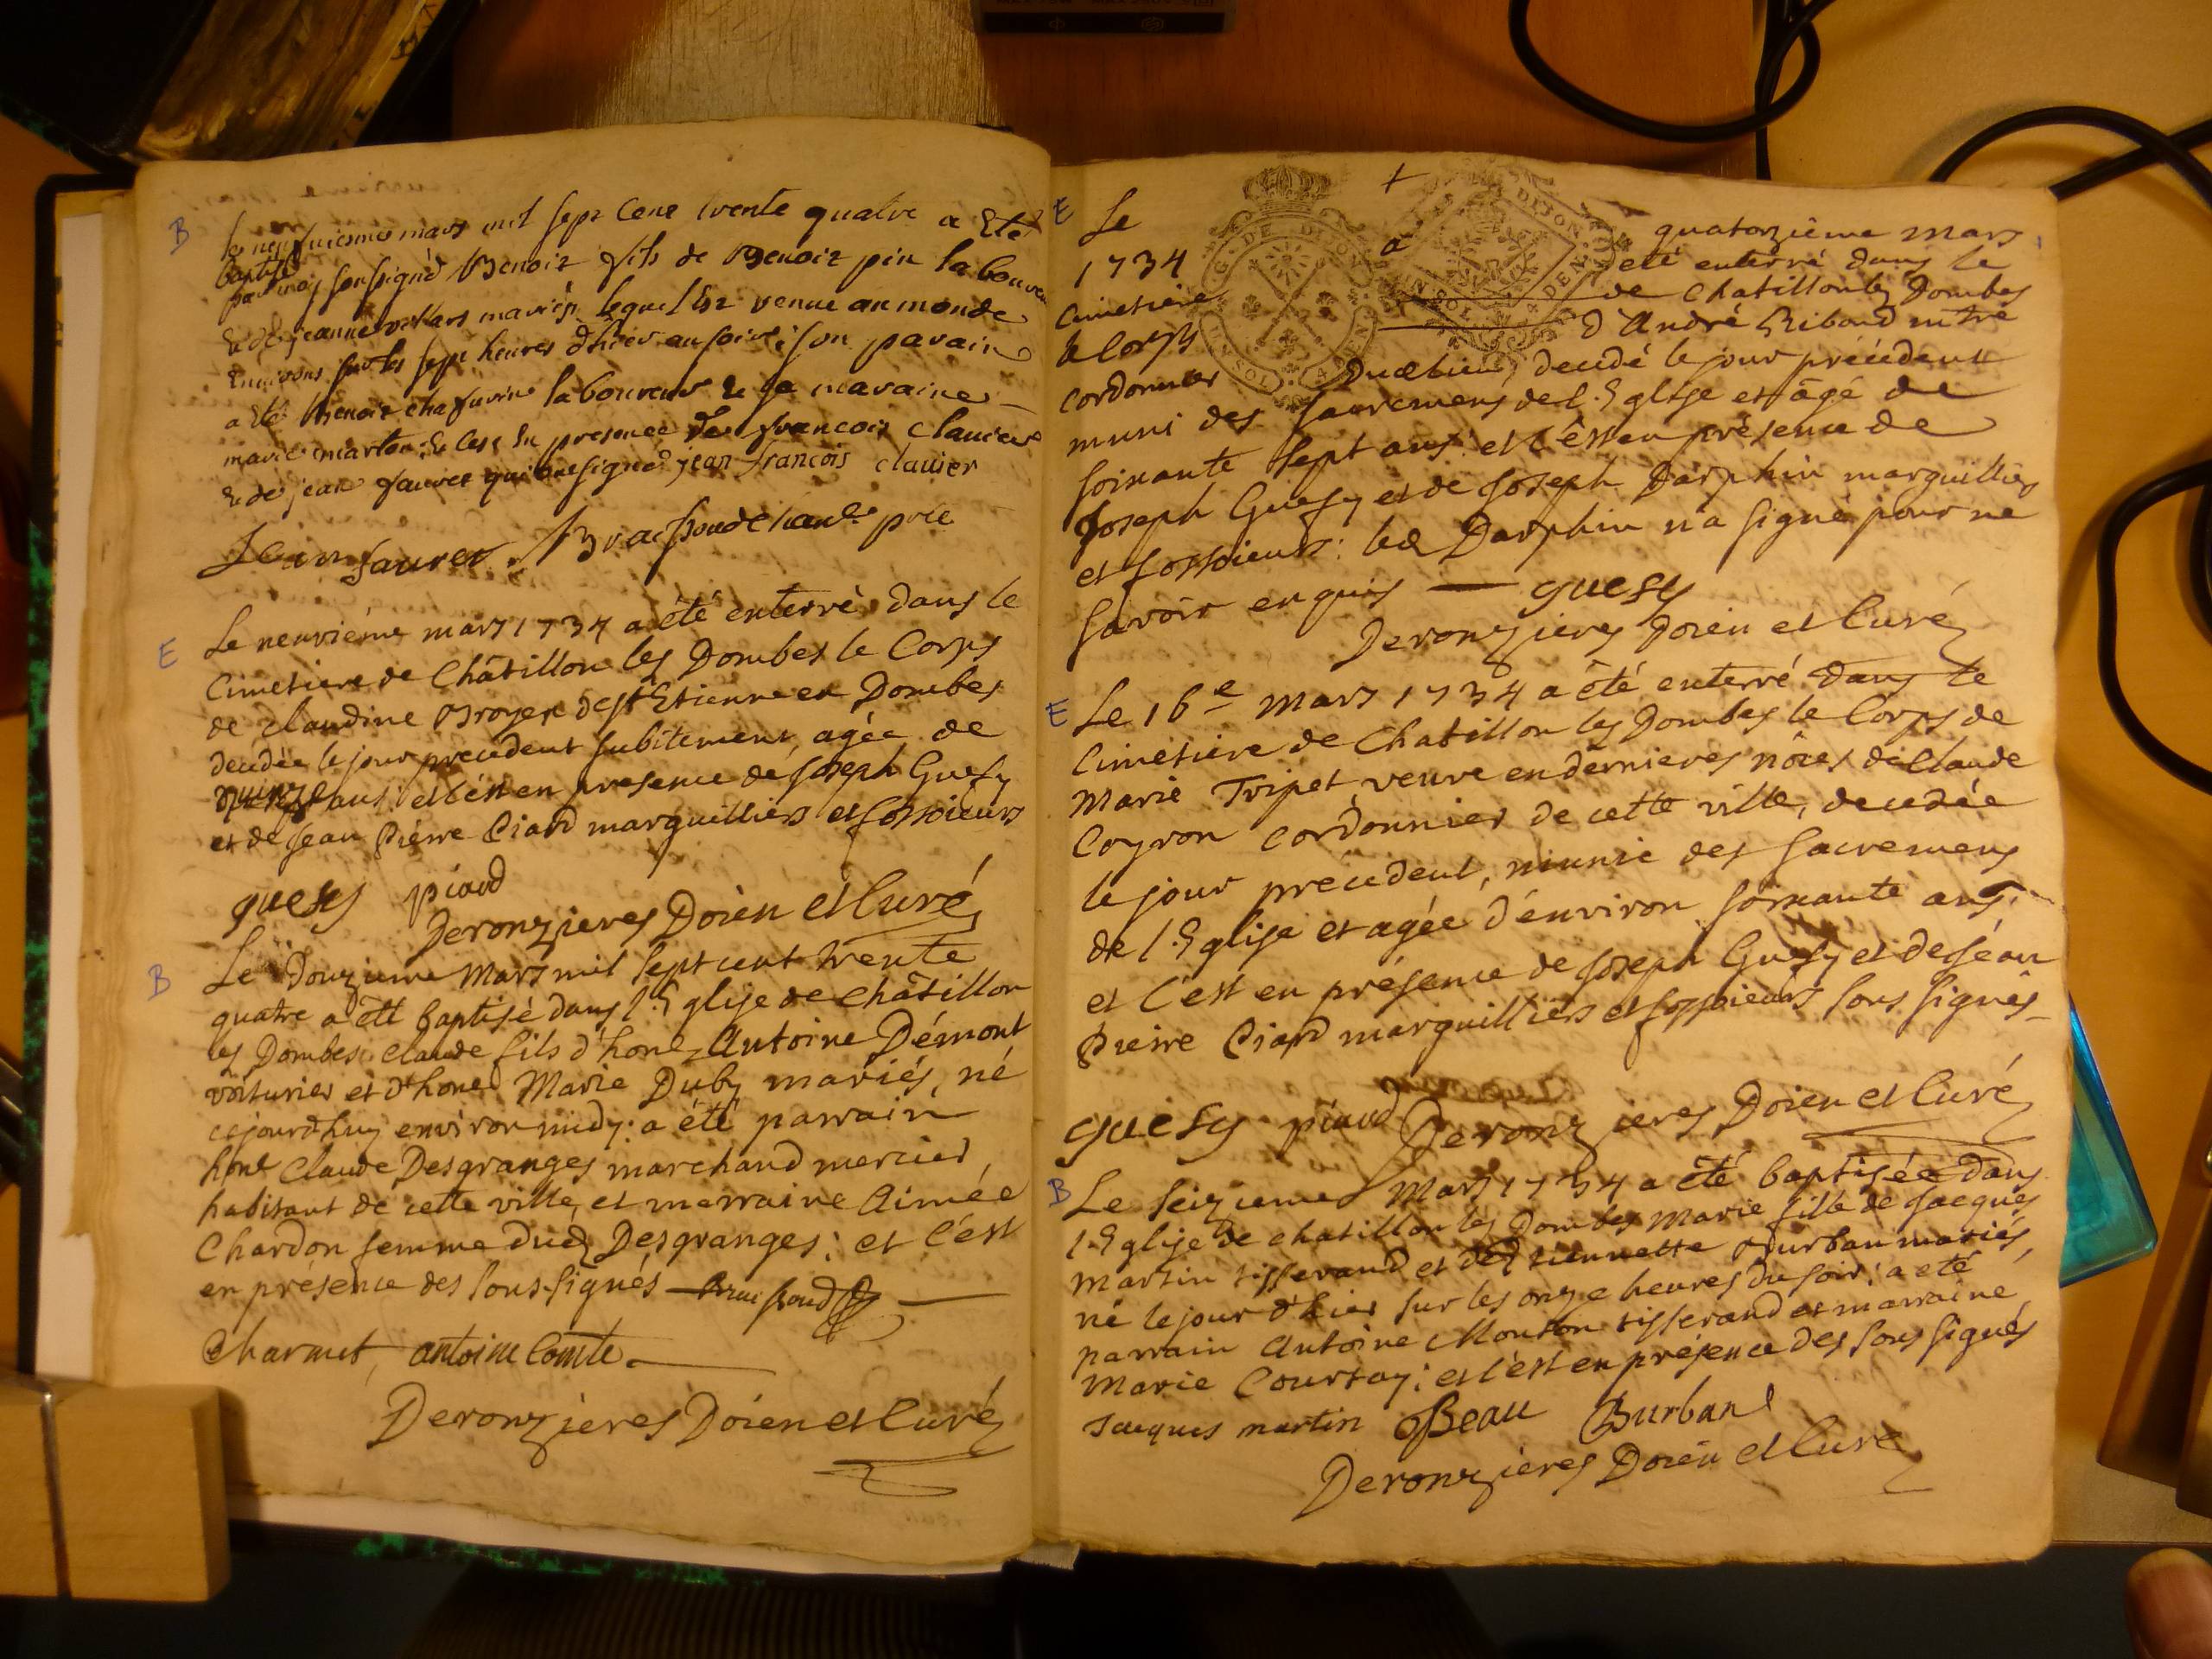 B
le neufviesme mars mil sept cent trente quatre a Eté
baptisé
par moy soussigné Benoit fils de Benoit pin laboureur
Et de jeanne villars mariés, lequel Est venue au monde
Environs sur les sept heures d'hier au soir; son parain
a été Benoit chafurin laboureur Et sa maraine
marie marton; Et cest En presence de francois clauier
Et de jean fauret qui ont signé jean francois clauier
Jean fauret. pre
E
Le neuviéme mars 1734 a été enterré dans le
Cimetiere de Châtillon les Dombes le Corps
de claudine Broyer de St Etienne en Dombes
decedée le jour precedent subitement, agée de
quinze ans: et c'est en presence de Joseph Guesy
et de Jean Pierre Piard marguilliers et fossoieurs
guesy piard
Deronzieres Doien et Curé
B
Le Douzieme Mars mil Sept cent trente
quatre a été baptisé dans l'Eglise de châtillon
les Dombes claude fils d'hone Antoine Démont
voiturier et d'hone Marie Duby mariés, né
cejourdhuy environ midy: a été parrain
hone Claude Desgranges marchand mercier,
habitant de cette ville, et marraine Aimée
Chardon femme dud. Desgranges: et c'est
en présence des sous-signés
Charmet, antoine Comte
Deronzieres Doien et Curé
E
Le quatorzième mars
1734 a été enterré dans le
Cimetiere de Chatillon les Dombes
le Corps d'André Riboud mtre
Cordonnier dud. lieu, decedé le jour précédent
muni des sacremens de l'Eglise et âgé de
soixante sept ans: et c'est en présence de
Joseph Guesy et de Joseph Darphin marguilliers
et fossoieurs: led. Darphin n'a signé pour ne
savoir enquis — guesy
Deronzieres Doien et Curé
E
Le 16e Mars 1734 a été enterré dans le
Cimetiere de Chatillon les Dombes le Corps de
Marie Tripet, veuve en dernieres nôces de Claude
Coyron cordonnier de cette ville, decedée
le jour précédent, munie des sacremens
de l'Eglise et agée d'environ soixante ans:
et c'est en présence de Joseph Guesy et de Jean
Pierre Piard marguilliers et fossoieurs sous signés
guesy piard Deronzieres Doien et Curé
B
Le Seizieme Mars 1734 a été baptisée dans
l'Eglise de chatillon les Dombes Marie fille de Jacques
Martin tisserand et d'Etiennette Burban mariés,
né le jour d'hier sur les onze heures du soir: a eté
parrain Antoine Mouton tisserand et marraine
Marie Coursay: et c'est en présence des sous signés
Jacques martin Beau Burban
Deronzieres Doien et Curé
G. DE DIJON
4 DEN